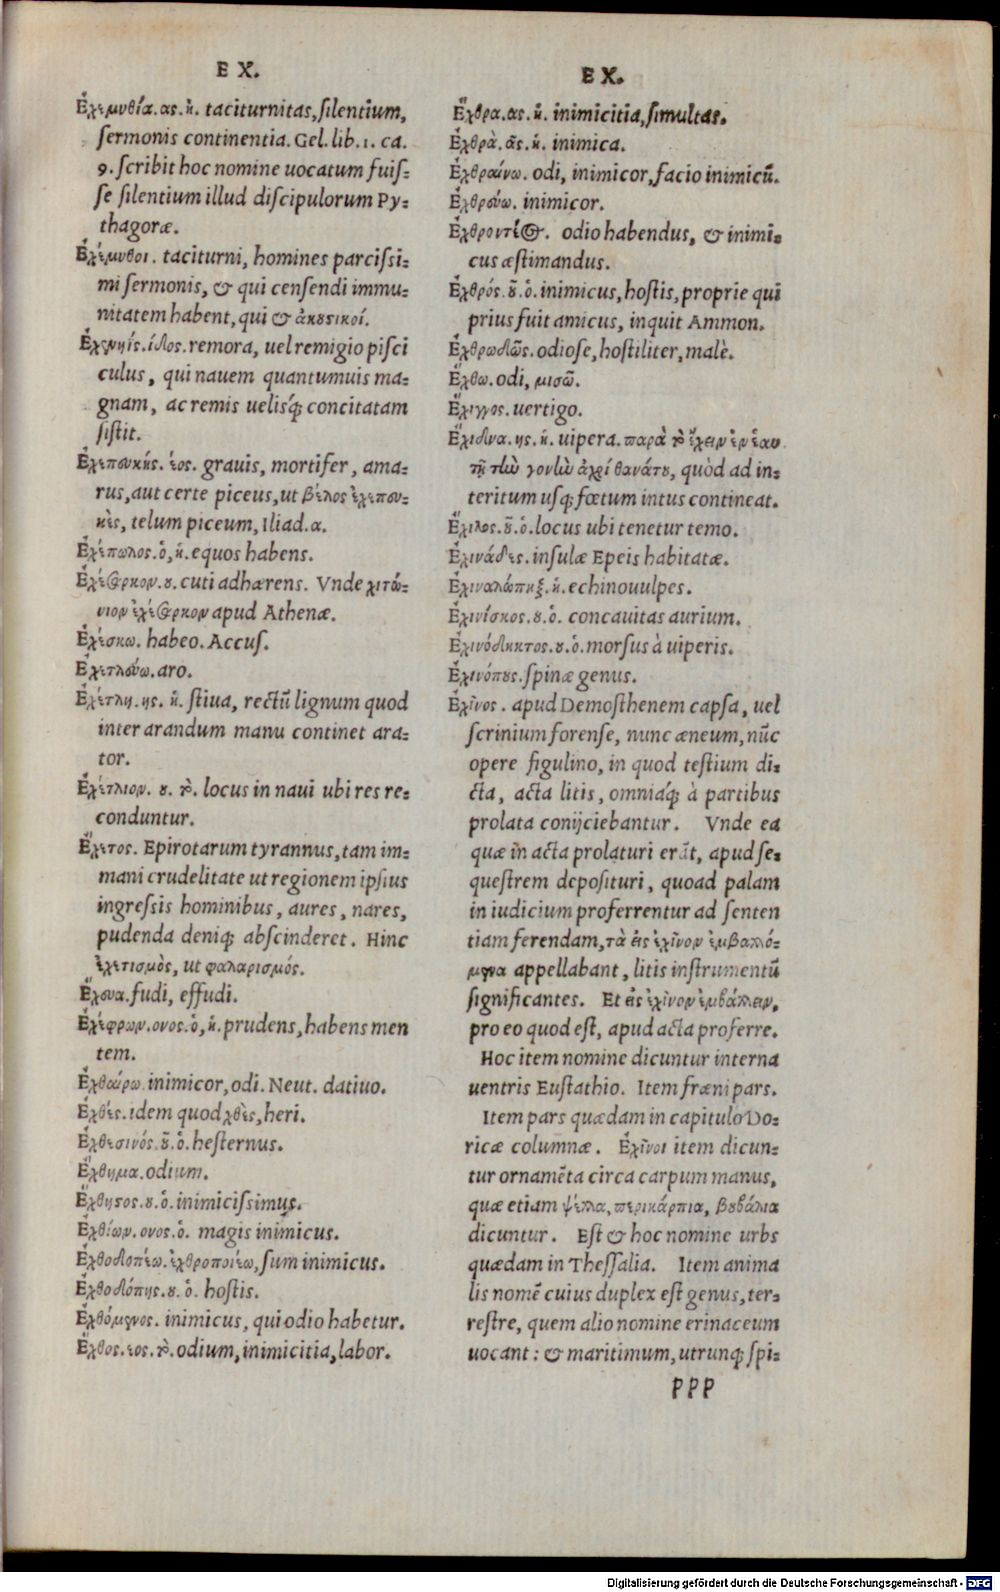 E X.
Ἐχεμυθία.ας.ἡ. taciturnitas, ſilentium,
ſermonis continentia. Gel. lib. 1. ca.
9. ſcribit hoc nomine uocatum fuiſ-
ſe ſilentium illud diſcipulorum Py-
thagoræ.
Ἐχέμυθοι. taciturni, homines parciſsi-
mi ſermonis, & qui cenſendi immu-
nitatem habent, qui & ἀκουστικοί.
Ἐχενηΐς.ίδος. remora, uel remigio piſci
culus, qui nauem quantumuis ma-
gnam, ac remis uelisq́; concitatam
ſiſtit.
Ἐχεπευκής.έος. grauis, mortifer, ama-
rus, aut certe piceus, ut βέλος ἐχεπευ-
κὲς, telum piceum, Iliad.α.
Ἐχέπωλος.ὁ,ἡ. equos habens.
Ἐχέσαρκον.ου. cuti adhærens. Vnde χιτώ-
νιον ἐχέσαρκον apud Athenæ.
Ἐχέσκω. habeo. Accuſ.
Ἐχετλεύω. aro.
Ἐχέτλη.ης.ἡ. ſtiua, rectũ lignum quod
inter arandum manu continet ara-
tor.
Ἐχέτλιον.ου.τὸ. locus in naui ubi res re-
conduntur.
Ἔχετος. Epirotarum tyrannus, tam im-
mani crudelitate ut regionem ipſius
ingreſsis hominibus, aures, nares,
pudenda deniq; abſcinderet. Hinc
ἐχετισμὸς, ut φαλαρισμός.
Ἔχευα. fudi, effudi.
Ἐχέφρων.ονος.ὁ,ἡ. prudens, habens men
tem.
Ἐχθαίρω. inimicor, odi. Neut. datiuo.
Ἐχθές. idem quod χθὲς, heri.
Ἐχθεσινός.οῦ.ὁ. heſternus.
Ἔχθημα. odium.
Ἔχθιστος.ου.ὁ. inimiciſsimus.
Ἐχθίων.ονος.ὁ. magis inimicus.
Ἐχθοδοπέω. ἐχθροποιέω, ſum inimicus.
Ἐχθοδόπης.ου.ὁ. hoſtis.
Ἐχθόμενος. inimicus, qui odio habetur.
Ἔχθος.εος.τὸ. odium, inimicitia, labor.
E X.
Ἔχθρα.ας.ἡ. inimicitia, ſimultas.
Ἐχθρὰ.ᾶς.ἡ. inimica.
Ἐχθραίνω. odi, inimicor, facio inimicũ.
Ἐχθρεύω. inimicor.
Ἐχθροντέος. odio habendus, & inimi-
cus æſtimandus.
Ἐχθρός.οῦ.ὁ. inimicus, hoſtis, proprie qui
prius fuit amicus, inquit Ammon.
Ἐχθρωδῶς. odioſe, hoſtiliter, malè.
Ἔχθω. odi, μισῶ.
Ἔχιγγος. uertigo.
Ἔχιδνα.ης.ἡ. uipera. παρὰ τὸ ἔχειν ἐν ἑαυ
τῇ τὴν γονὴν ἄχρι θανάτου, quòd ad in-
teritum uſq; fœtum intus contineat.
Ἔχιλος.οῦ.ὁ. locus ubi tenetur temo.
Ἐχινάδες. inſulæ Epeis habitatæ.
Ἐχιναλώπηξ.ἡ. echinouulpes.
Ἐχινίσκος.ου.ὁ. concauitas aurium.
Ἐχινόδηκτος.ου.ὁ. morſus à uiperis.
Ἐχινόπους. ſpinæ genus.
Ἐχῖνος. apud Demoſthenem capſa, uel
ſcrinium forenſe, nunc æneum, nũc
opere figulino, in quod teſtium di-
cta, acta litis, omniaq́; à partibus
prolata conijciebantur. Vnde ea
quæ in acta prolaturi erãt, apud ſe-
queſtrem depoſituri, quoad palam
in iudicium proferrentur ad ſenten
tiam ferendam, τὰ εἰς ἐχῖνον ἐμβαλλό-
μενα appellabant, litis inſtrumentũ
ſignificantes. Et εἰς ἐχῖνον ἐμβάλλειν,
pro eo quod eſt, apud acta proferre.
Hoc item nomine dicuntur interna
uentris Euſtathio. Item fræni pars.
Item pars quædam in capitulo Do-
ricæ columnæ. Ἐχῖνοι item dicun-
tur ornamẽta circa carpum manus,
quæ etiam ψέλλα, περικάρπια, βουβάλια
dicuntur. Eſt & hoc nomine urbs
quædam in Theſſalia. Item anima
lis nomẽ cuius duplex eſt genus, ter-
reſtre, quem alio nomine erinaceum
uocant: & maritimum, utrunq; ſpi-
ppp
Digitalisierung gefördert durch die Deutsche Forschungsgemeinschaft - DFG